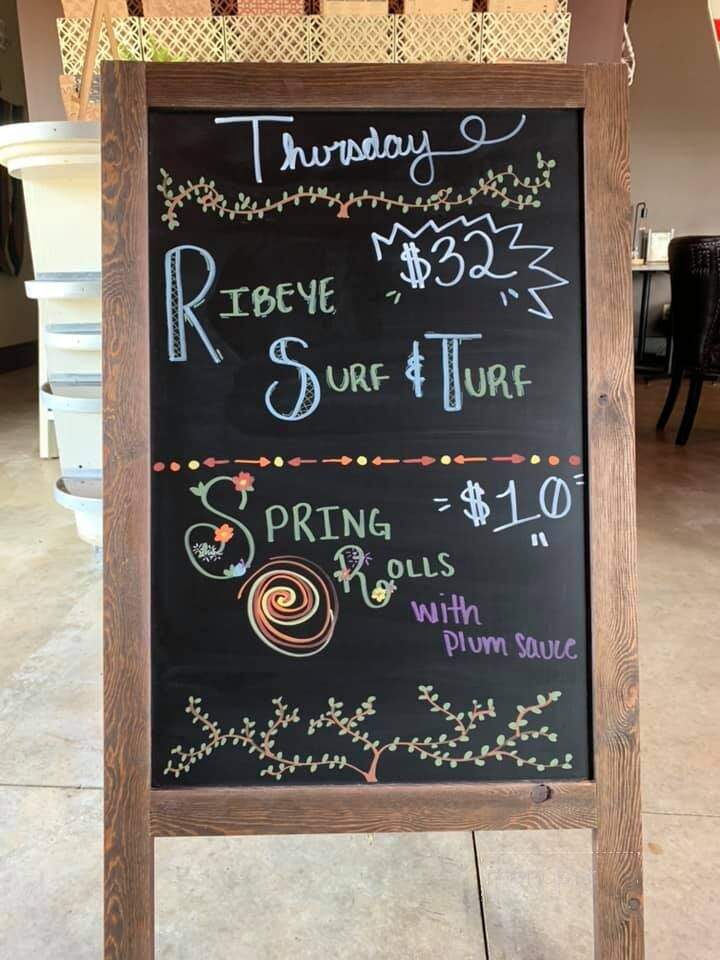 Thursday
$32
RIBEYE
SURF & TURF
SPRING $10
ROLLS
with
plum sauce